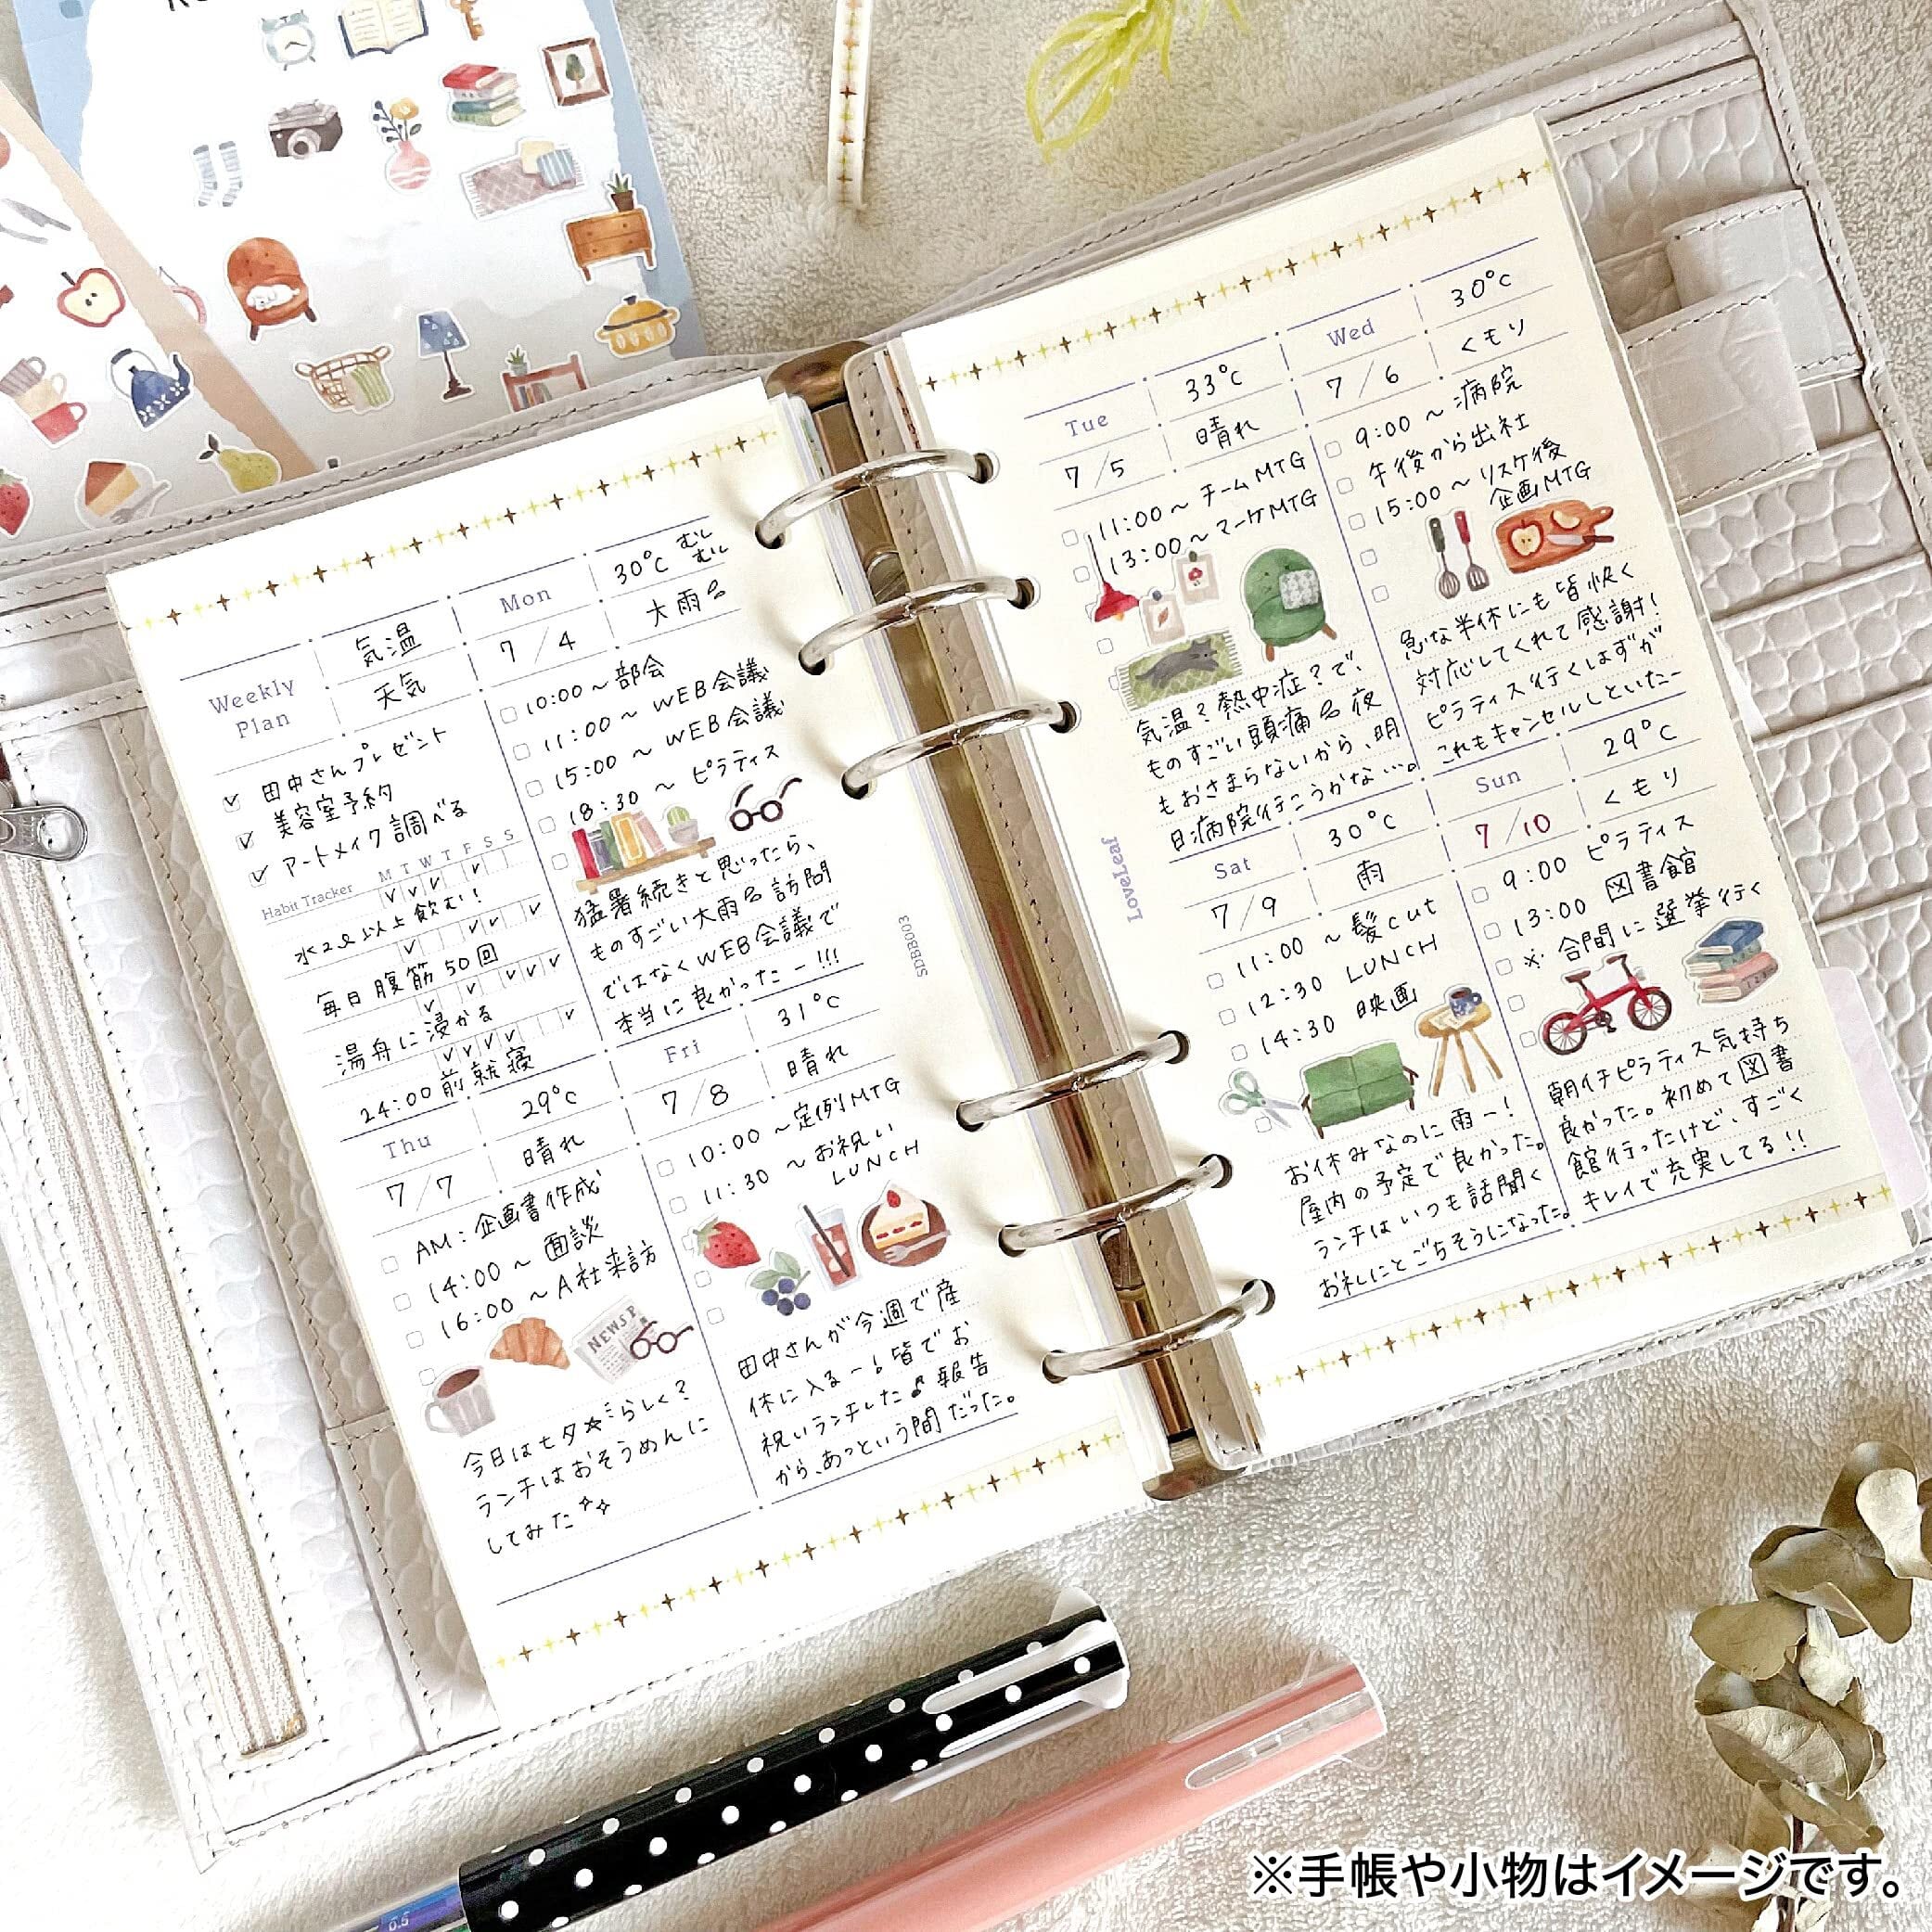 Weekly
Plan
気温
天気
田中さんプレゼント
美容室予約
アートメイク調べる
Habit Tracker
M T W T F S S
水2ℓ以上飲む!
毎日腹筋50回
湯舟に浸かる
24:00前就寝
Mon
7/4
30℃ むしむし
大雨
10:00〜部会
11:00〜WEB会議
15:00〜WEB会議
18:30〜ピラティス
猛暑続きと思ったら、
ものすごい大雨 訪問
ではなくWEB会議で
本当に良かったー!!!
Thu
7/7
29℃
晴れ
AM:企画書作成
14:00〜面談
16:00〜A社来訪
NEWSP
今日は七夕☆らしく?
ランチはおそうめんに
してみた
Fri
7/8
31℃
晴れ
10:00〜定例MTG
11:30〜お祝い
LUNCH
田中さんが今週で産
休に入るー! 皆でお
祝いランチした♪報告
から、あっという間だった。
SDBB003
LoveLeaf
Tue
7/5
33℃
晴れ
11:00〜チームMTG
13:00〜マーケMTG
気温?熱中症?で、
ものすごい頭痛 夜
もおさまらないから、明
日病院行こうかな…。
Wed
7/6
30℃
くもり
9:00〜病院
午後から出社
15:00〜リスケ後
企画MTG
急な半休にも皆快く
対応してくれて感謝!
ピラティス行くはずが
これもキャンセルしといたー
Sat
7/9
30℃
雨
11:00〜髪cut
12:30 LUNCH
14:30 映画
お休みなのに雨ー!
屋内の予定で良かった。
ランチはいつも話聞く
お礼にとごちそうになった。
Sun
7/10
29℃
くもり
9:00 ピラティス
13:00 図書館
※合間に選挙行く
朝イチピラティス気持ち
良かった。初めて図書
館行ったけど、すごく
キレイで充実してる!!
0.5
※手帳や小物はイメージです。